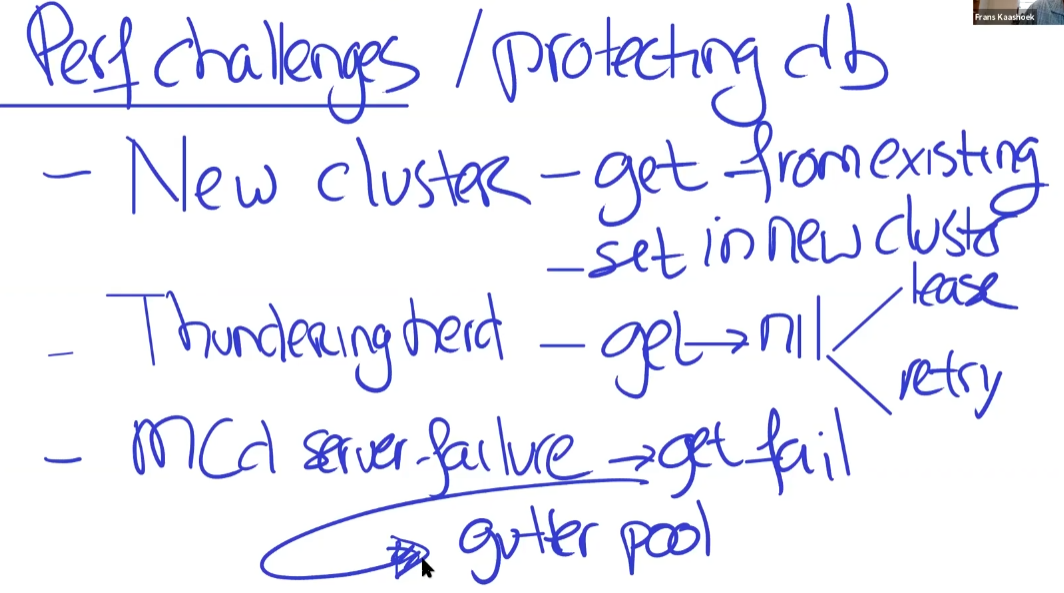 Frans Kaashoek
Perf challenges / protecting db
- New cluster - get from existing
- set in new cluster
lease
- Thundering herd - get → nil
retry
- MCd server failure → get fail
gutter pool